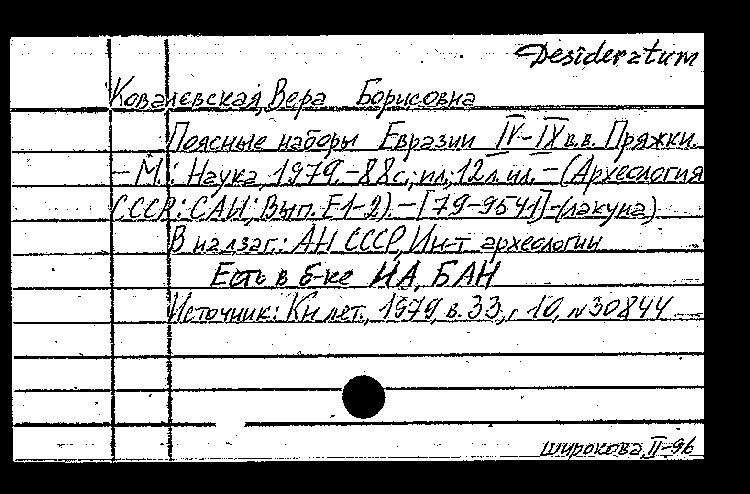 Desideratum
Ковалевская, Вера Борисовна
Поясные наборы Евразии IV-IX в.в. Пряжки.
— М.: Наука, 1979. – 88с.; ил.; 12 л. ил. – (Археология
СССР: САИ; Вып. Е1-2). – [79-9541] – (лакуна)
В надзаг.: АН СССР, Ин-т археологии
Есть в б-ке ИА, БАН
Источник: Кн лет., 1979, в. 33, г 10, № 30844
Широкова, II-96